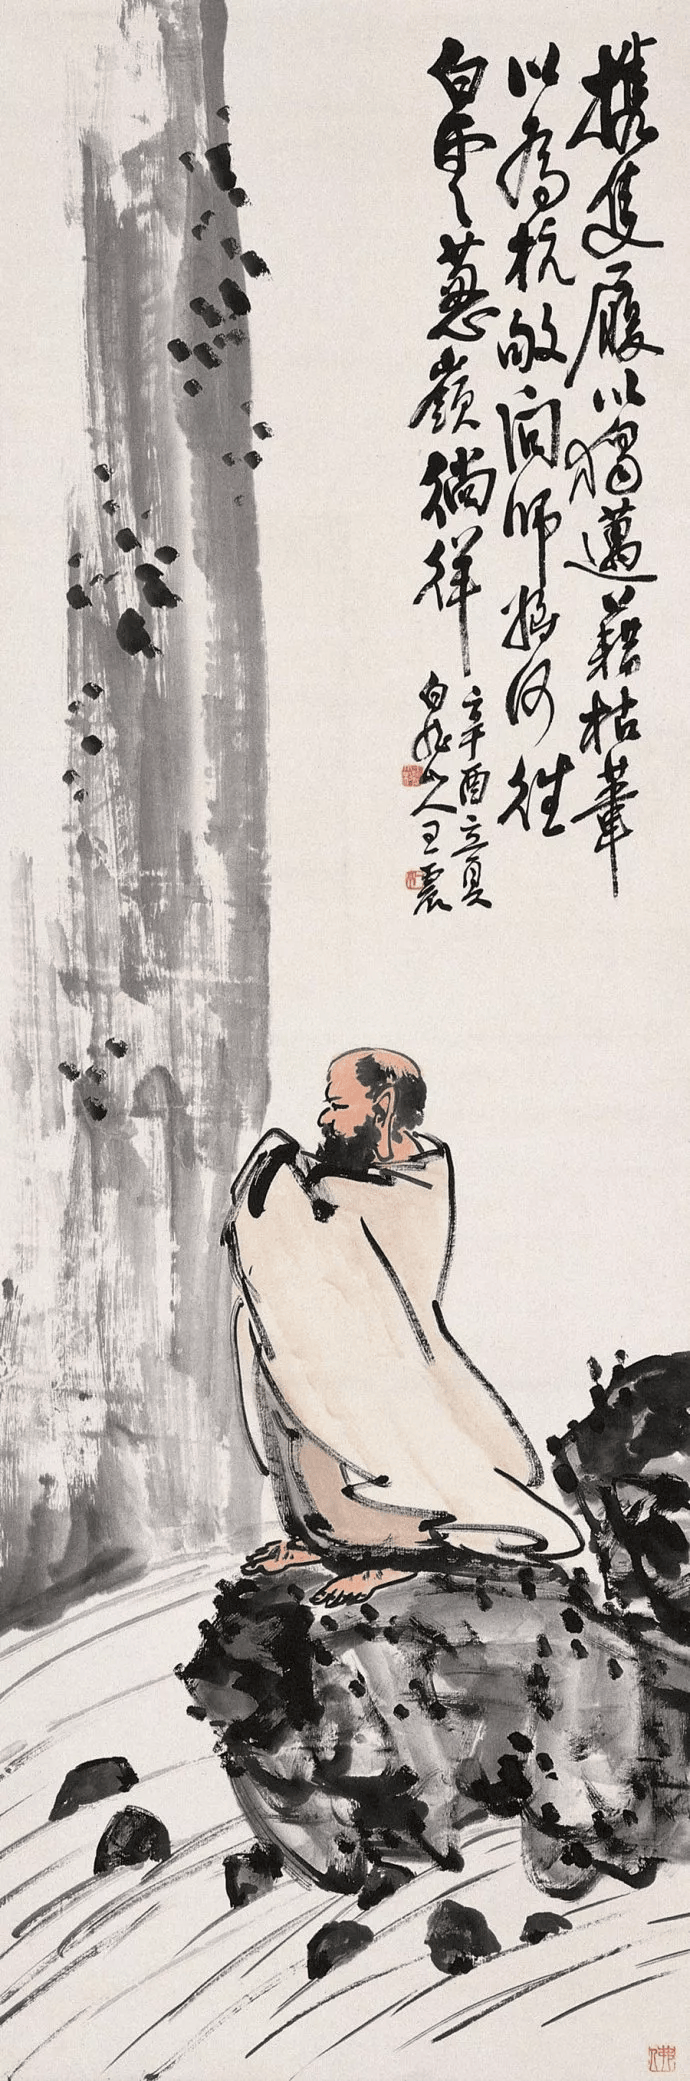 携隻履以獨邁藉枯葦
以為杭敢问師將何往
白雲蔥嶺徜徉
辛酉立夏
白龙山人王震